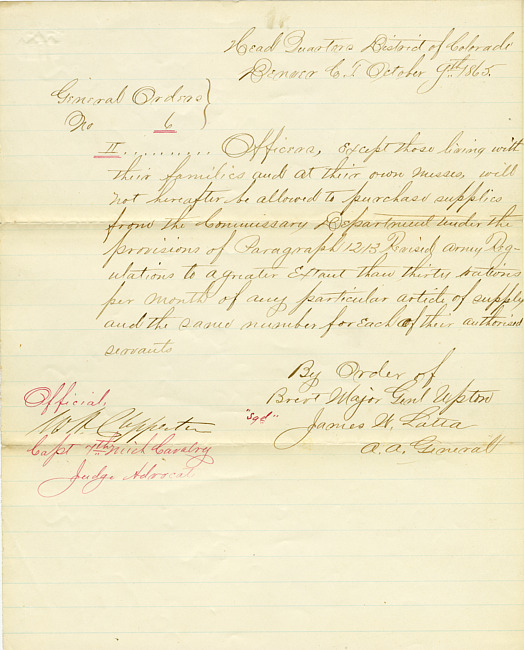 Head Quarters District of Colorado
Denver C.T. October 9th 1865.
General Orders
No 6
II.......... Officers, Except those living with
their families and at their own messes, will
not hereafter be allowed to purchase supplies
from the Commissary Department under the
provisions of Paragraph 1213 Revised Army Reg-
ulations to a greater Extent than thirty rations
per month of any particular article of supply
and the same number for each of their authorised
servants
By Order of
Brevt Major Genl Upton
"Sgd" James W. Latta
A.A. Generall
Official,
Capt 7th Mich Cavalry
Judge Advocat